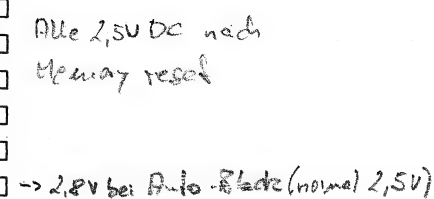 Alle 2,5V DC nach
Memory reset
-> 2,8V bei Auto-Black (normal 2,5V)